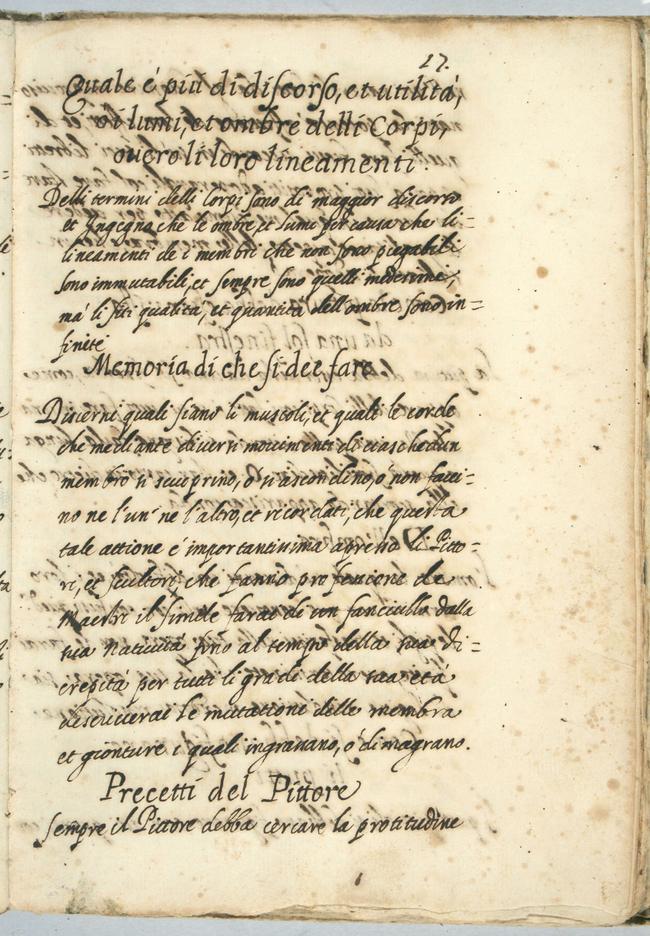 17.
Quale è più di discorso, et utilità,
ò i lumi, et ombre delli Corpi,
overo li loro lineamenti.
Delli termini delli Corpi sono di maggior discorso
et Ingegno che le ombre, et lumi per causa che li=
lineamenti de i membri che non sono piegabili
sono immutabili, et sempre sono quelli medesimi,
mà li siti qualità, et quantità dell'ombre sono in=
finite
Memoria di che si dee fare
Discerni quali siano li muscoli, et quali le corde
che mediante diversi movimenti di ciaschedun
membro si scuoprino, ò si ascondino, ò non facci=
no ne l'un' ne l'altro, et ricordati, che questa
tale attione è importantissima apresso li Pitto=
ri, et scultori, che fanno professione de
Maestri il simile farai di un fanciullo dalla
sua natività sino al tempo della sua di=
crepità per tutti li gradi della sua età
descriverai le mutationi delle membra
et gionture i quali ingrassano, ò dimagrano.
Precetti del Pittore
sempre il Pittore debba cercare la protitudine